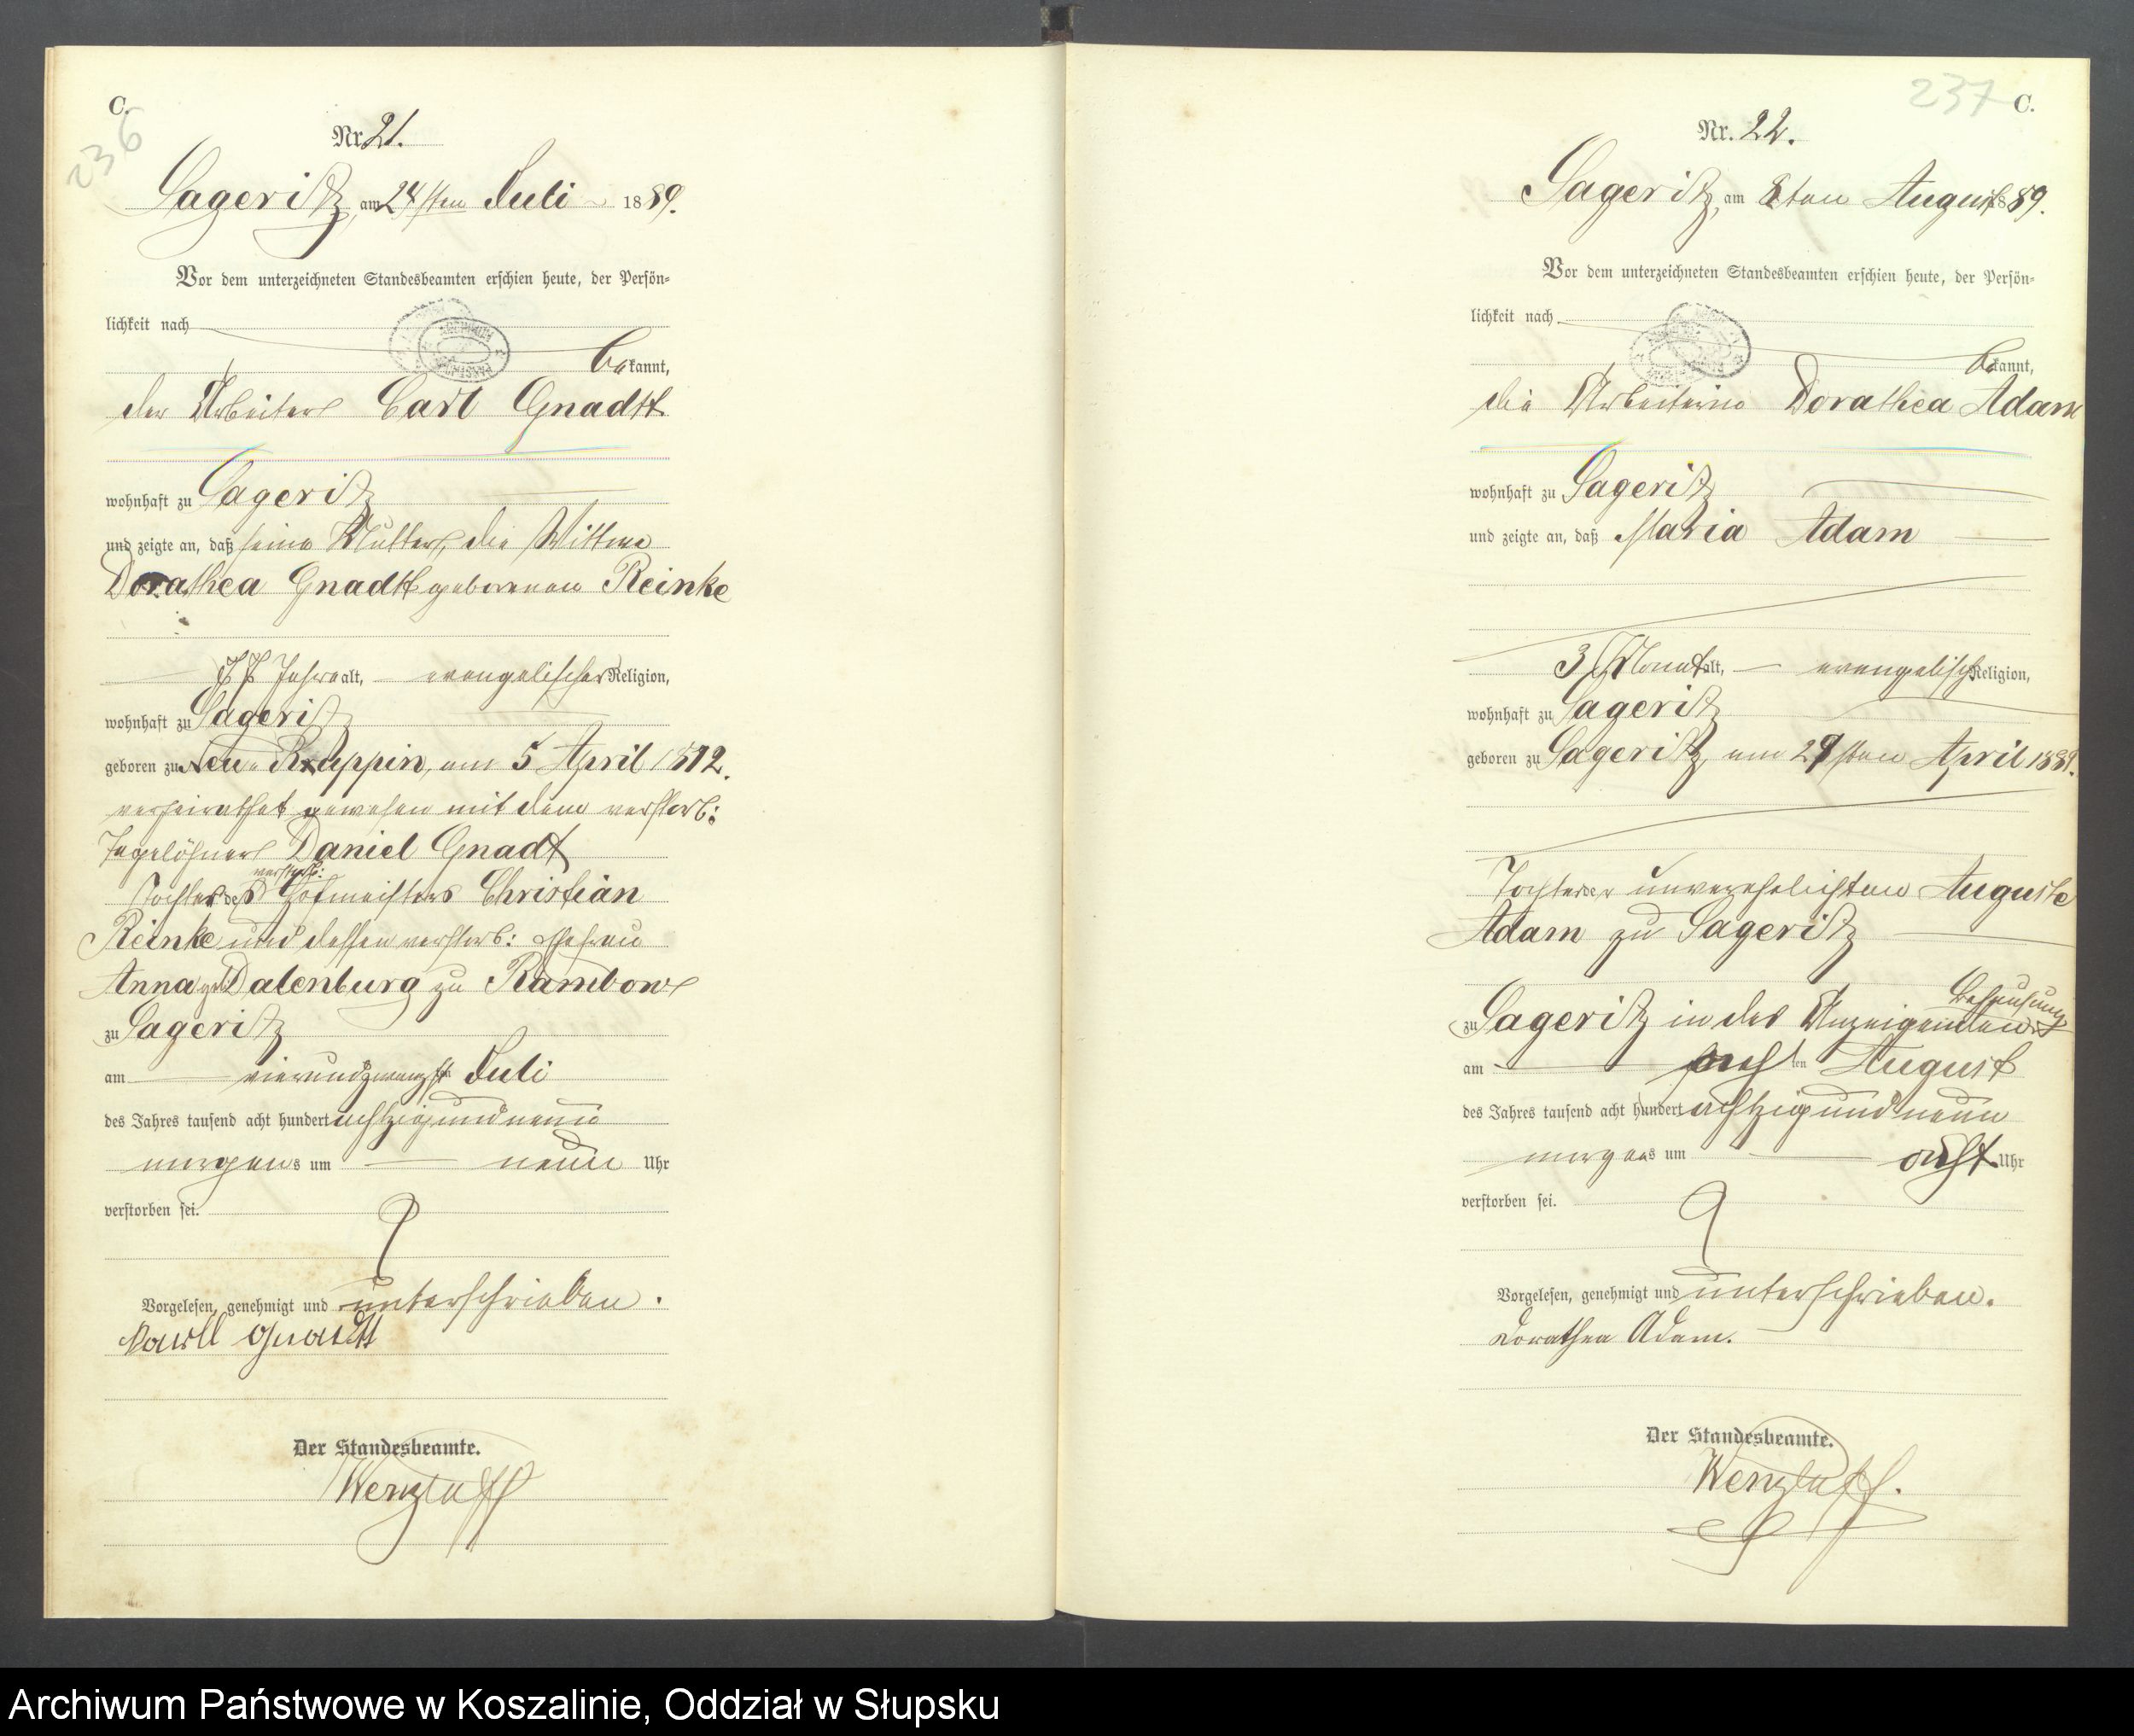 C.
236
Nr. 21.
Sageritz, am 24sten Juli 1889.
Vor dem unterzeichneten Standesbeamten erschien heute, der Persön-
lichkeit nach
bekannt,
der Arbeiter Carl Gnadtt
wohnhaft zu Sageritz
und zeigte an, daß seine Mutter, die Wittwe
Dorathea Gnadtt geborenen Reinke
77 Jahre alt, evangelischer Religion,
wohnhaft zu Sageritz
geboren zu Neu- Kuppin, am 5 April 1812.
verheirathet gewesen mit dem verstorb:
Tagelöhner Daniel Gnadt
verstorb:
Tochter des Hofmeisters Christian
Reinke und dessen verstorb: Ehefrau
Anna geb Dalenburg zu Rambow
zu Sageritz
am vierundzwanzigsten Juli
des Jahres tausend acht hundert achtzig und neun
morgens um neun Uhr
verstorben sei.
Vorgelesen, genehmigt und unterschrieben.
Karll Gnadtt
Der Standesbeamte.
Wenzlaff
237
C.
Nr. 22.
Sageritz, am 8ten August 1889.
Vor dem unterzeichneten Standesbeamten erschien heute, der Persön-
lichkeit nach
bekannt,
die Arbeiterin Dorathea Adam
wohnhaft zu Sageritz
und zeigte an, daß Maria Adam
3 Monat alt, evangelisch Religion,
wohnhaft zu Sageritz
geboren zu Sageritz, am 29sten April 1889.
Tochter der unverehelichten Auguste
Adam zu Sageritz
Behausung
zu Sageritz in der Anzeigenden
am achten August
des Jahres tausend acht hundert achtzig und neun
morgens um acht Uhr
verstorben sei.
Vorgelesen, genehmigt und unterschrieben.
Dorathea Adam.
Der Standesbeamte.
Wenzlaff.
Archiwum Państwowe w Koszalinie, Oddział w Słupsku